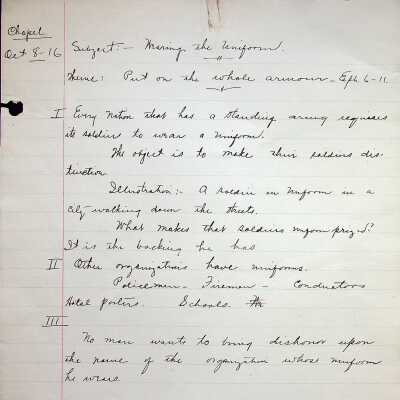 Chapel
Oct 8-16
Subject:- Waring the Uniform.
Theme: Put on the whole armour - Eph. 6-11.
I Every Nation that has a standing army requires
its soldiers to wear a Uniform.
The object is to make their soldiers dis-
tinction
Illustration:- A soldier in Uniform in a
city walking down the streets.
What makes that soldiers uniform prized?
It is the backing he has
II Other organizations have uniforms.
Policemen - Firemen - Conductors
Hotel porters. Schools.
III
No man wants to bring dishonor upon
the name of the organization whose uniform
he wears